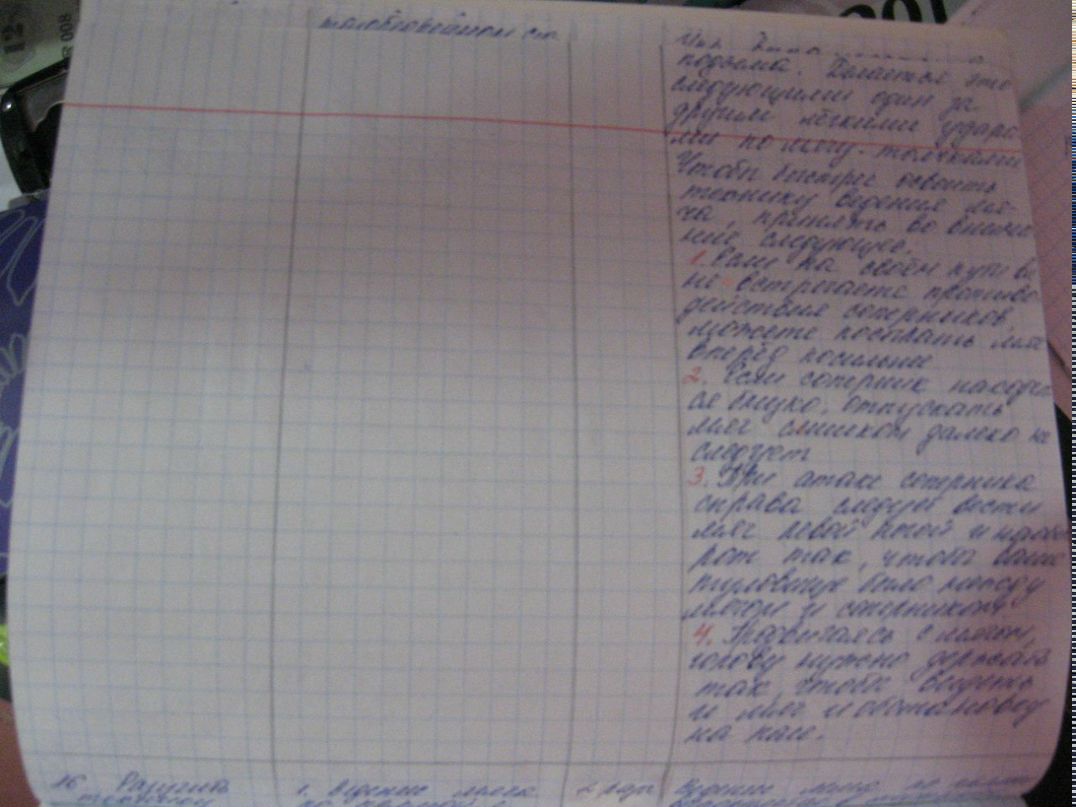 подъёма. Делается это
следующими один за
другим лёгкими удара-
ми по мячу - толчками
Чтобы быстрее освоить
технику ведения мя-
ча, принять во внима
ние следующее.
1. Если на своём пути вы
не встречаете противо
действия соперников,
можете посылать мяч
вперёд посильнее
2. Если соперник находит
ся близко, отпускать
мяч слишком далеко не
следует
3. При атаке соперника
справа следует вести
мяч левой ногой и наобо
рот так, чтобы ваше
туловище было между
мячом и соперником
4. Продвигаясь с мячом,
голову нужно держать
так, чтобы видеть
и мяч и обстановку
на поле.
16 Разучить
1. Ведение мяча
Ведение мяча